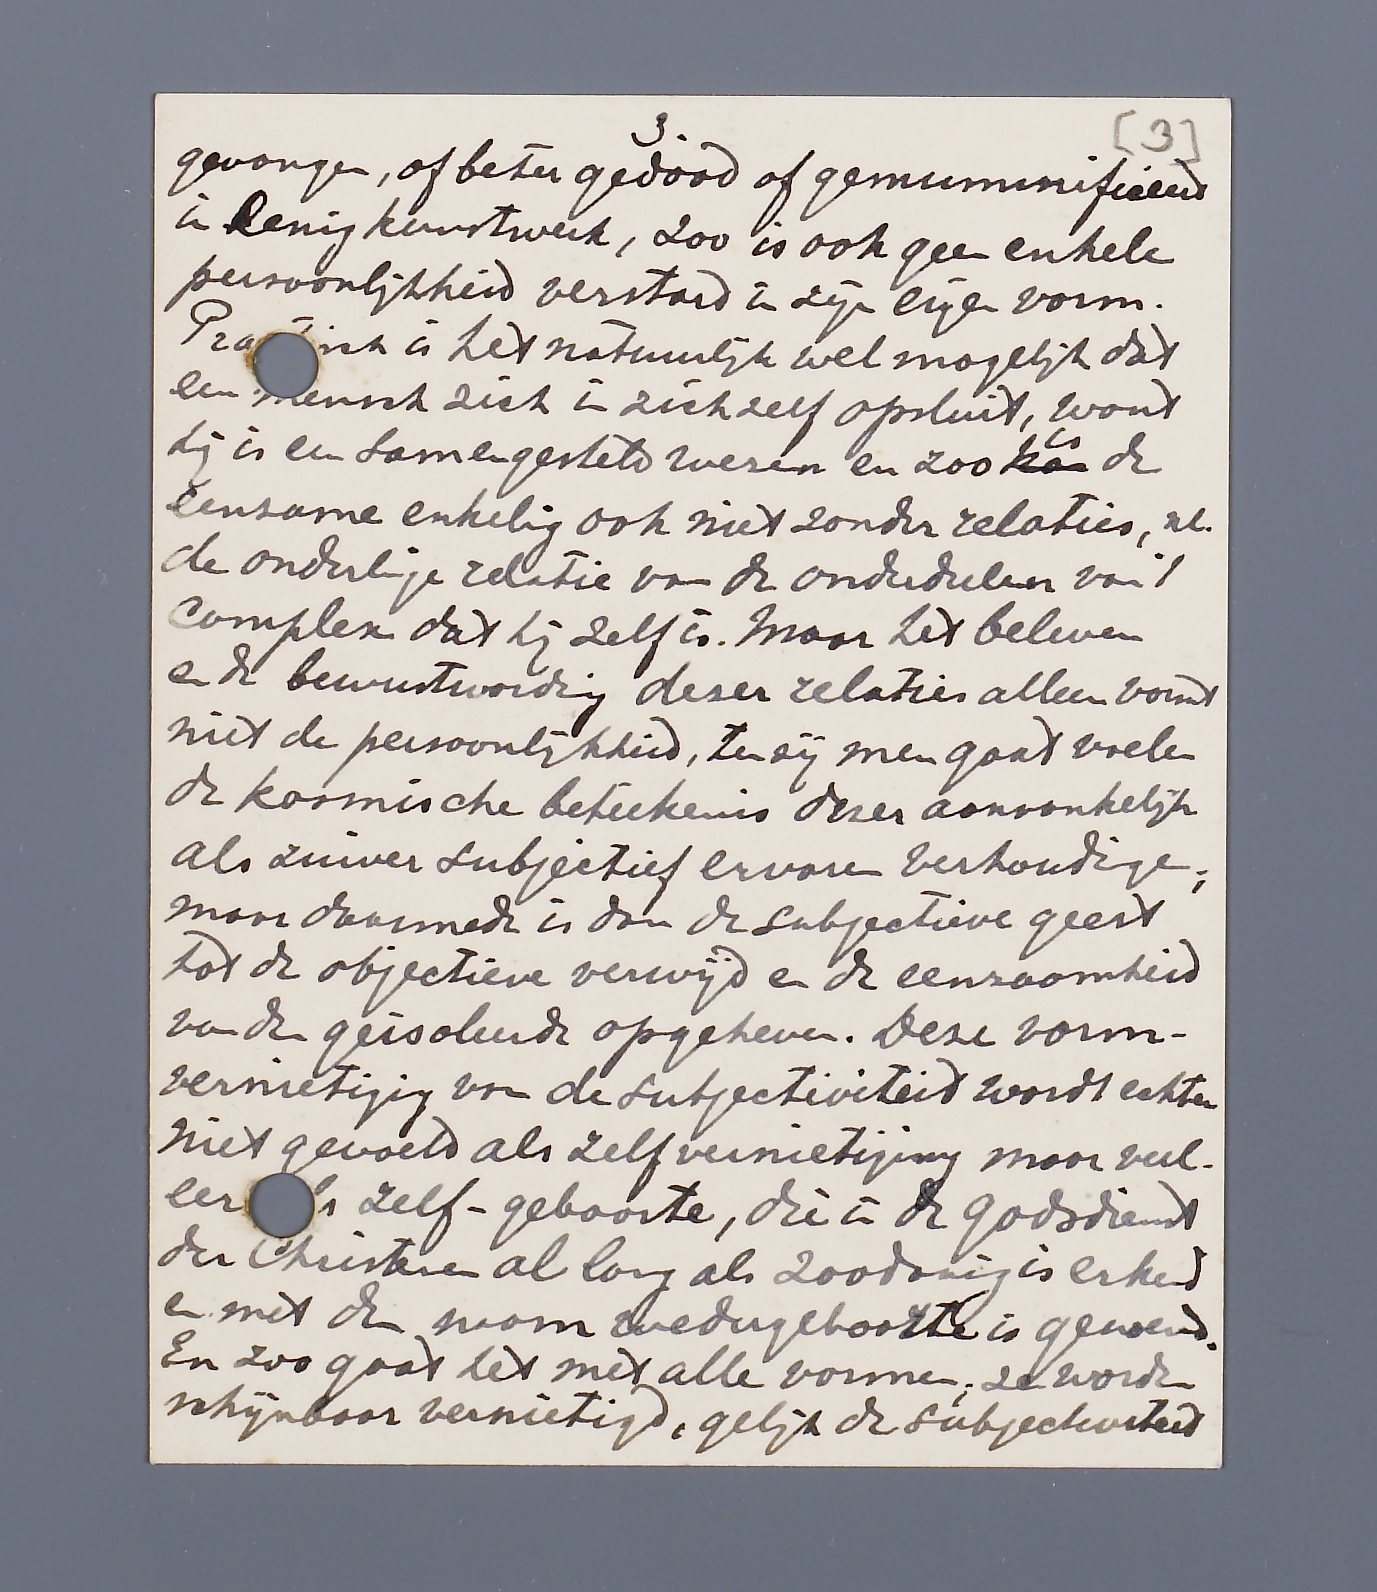 3.
[3]
gevangen, of beter gedood of gemummifieerd
in eenig kunstwerk, zoo is ook geen enkele
persoonlijkheid verstard in zijn eigen vorm.
is het natuurlijk wel mogelijk dat
een mensch zich in zichzelf opsluit, want
hij is een samengesteld wezen en zoo kan is de
eenzame enkeling ook niet zonder relaties, nl.
de onderlinge relatie van de onderdeelen van 't
complex dat hij zelf is. Maar het beleven
en de bewustwording dezer relaties alleen vormt
niet de persoonlijkheid, tenzij men gaat voelen
de kosmische beteekenis dezer aanvankelijk
als zuiver subjectief ervaren verhoudingen;
maar daarmede is dan de subjectieve geest
tot de objectieve verwijd en de eenzaamheid
van den geisoleerde opgeheven. Deze vorm-
vernietiging van de subjectiviteit wordt echter
niet gevoeld als zelfvernietiging maar veel-
eer als zelf-geboorte, die in de godsdienst
der Christenen al lang als zoodanig is erkend
en met den naam wedergeboorte is genoemd.
En zoo gaat het met alle vormen; ze worden
schijnbaar vernietigd, gelijk de subjectiviteit